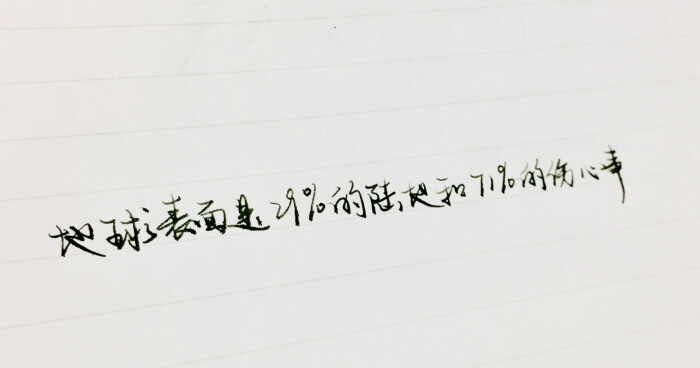 地球表面是29%的陆地和71%的伤心事